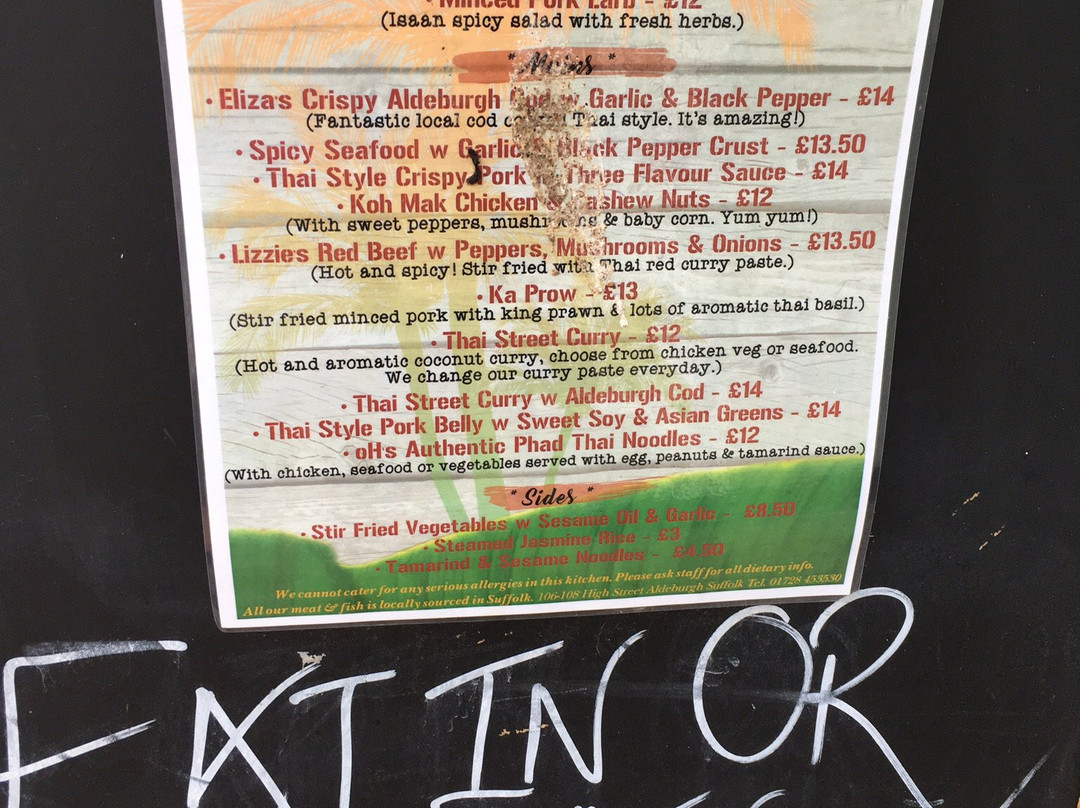 • Minced Pork Larb - £12
(Isaan spicy salad with fresh herbs.)
* Mains *
• Eliza's Crispy Aldeburgh Cod w Garlic & Black Pepper - £14
(Fantastic local cod Thai style. It's amazing!)
• Spicy Seafood w Garlic & Black Pepper Crust - £13.50
• Thai Style Crispy Pork w Three Flavour Sauce - £14
• Koh Mak Chicken & Cashew Nuts - £12
(With sweet peppers, mushrooms & baby corn. Yum yum!)
• Lizzie's Red Beef w Peppers, Mushrooms & Onions - £13.50
(Hot and spicy! Stir fried with Thai red curry paste.)
• Ka Prow - £13
(Stir fried minced pork with king prawn & lots of aromatic thai basil.)
• Thai Street Curry - £12
(Hot and aromatic coconut curry, choose from chicken veg or seafood.
We change our curry paste everyday.)
• Thai Street Curry w Aldeburgh Cod - £14
• Thai Style Pork Belly w Sweet Soy & Asian Greens - £14
• oH's Authentic Phad Thai Noodles - £12
(With chicken, seafood or vegetables served with egg, peanuts & tamarind sauce.)
* Sides *
• Stir Fried Vegetables w Sesame Oil & Garlic - £8.50
• Steamed Jasmine Rice - £3
• Tamarind & Sesame Noodles - £4.50
We cannot cater for any serious allergies in this kitchen. Please ask staff for all dietary info.
All our meat & fish is locally sourced in Suffolk. 106-108 High Street Aldeburgh Suffolk Tel. 01728 453530
EAT IN OR